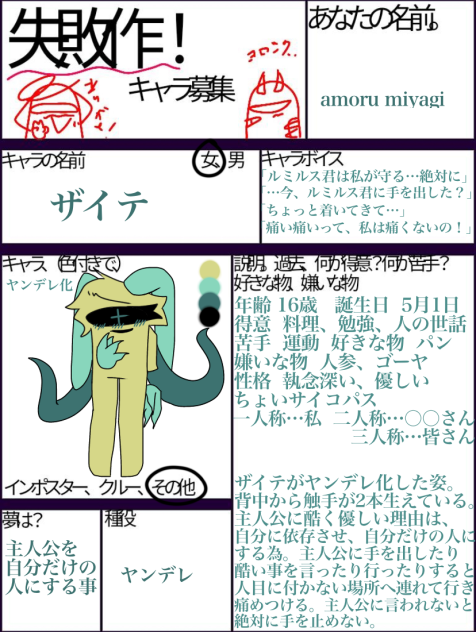 失敗作！
キャラ募集
あなたの名前。
amoru miyagi
キャラの名前
女、男
ザイテ
キャラボイス
「ルミルス君は私が守る…絶対に」
「…今、ルミルス君に手を出した？」
「ちょっと着いてきて…」
「痛い痛いって、私は痛くないの！」
キャラ、（色付きで、）
ヤンデレ化
インポスター、クルー、その他
説明。過去、何が得意？何が苦手？
好きな物、嫌いな物
年齢 16歳　誕生日 5月1日
得意　料理、勉強、人の世話
苦手　運動　好きな物　パン
嫌いな物　人参、ゴーヤ
性格　執念深い、優しい
ちょいサイコパス
一人称…私　二人称…〇〇さん
三人称…皆さん
ザイテがヤンデレ化した姿。
背中から触手が2本生えている。
主人公に酷く優しい理由は、
自分に依存させ、自分だけの人に
する為。主人公に手を出したり
酷い事を言ったり行ったりすると
人目に付かない場所へ連れて行き
痛めつける。主人公に言われないと
絶対に手を止めない。
夢は？
主人公を
自分だけの
人にする事
種役
ヤンデレ